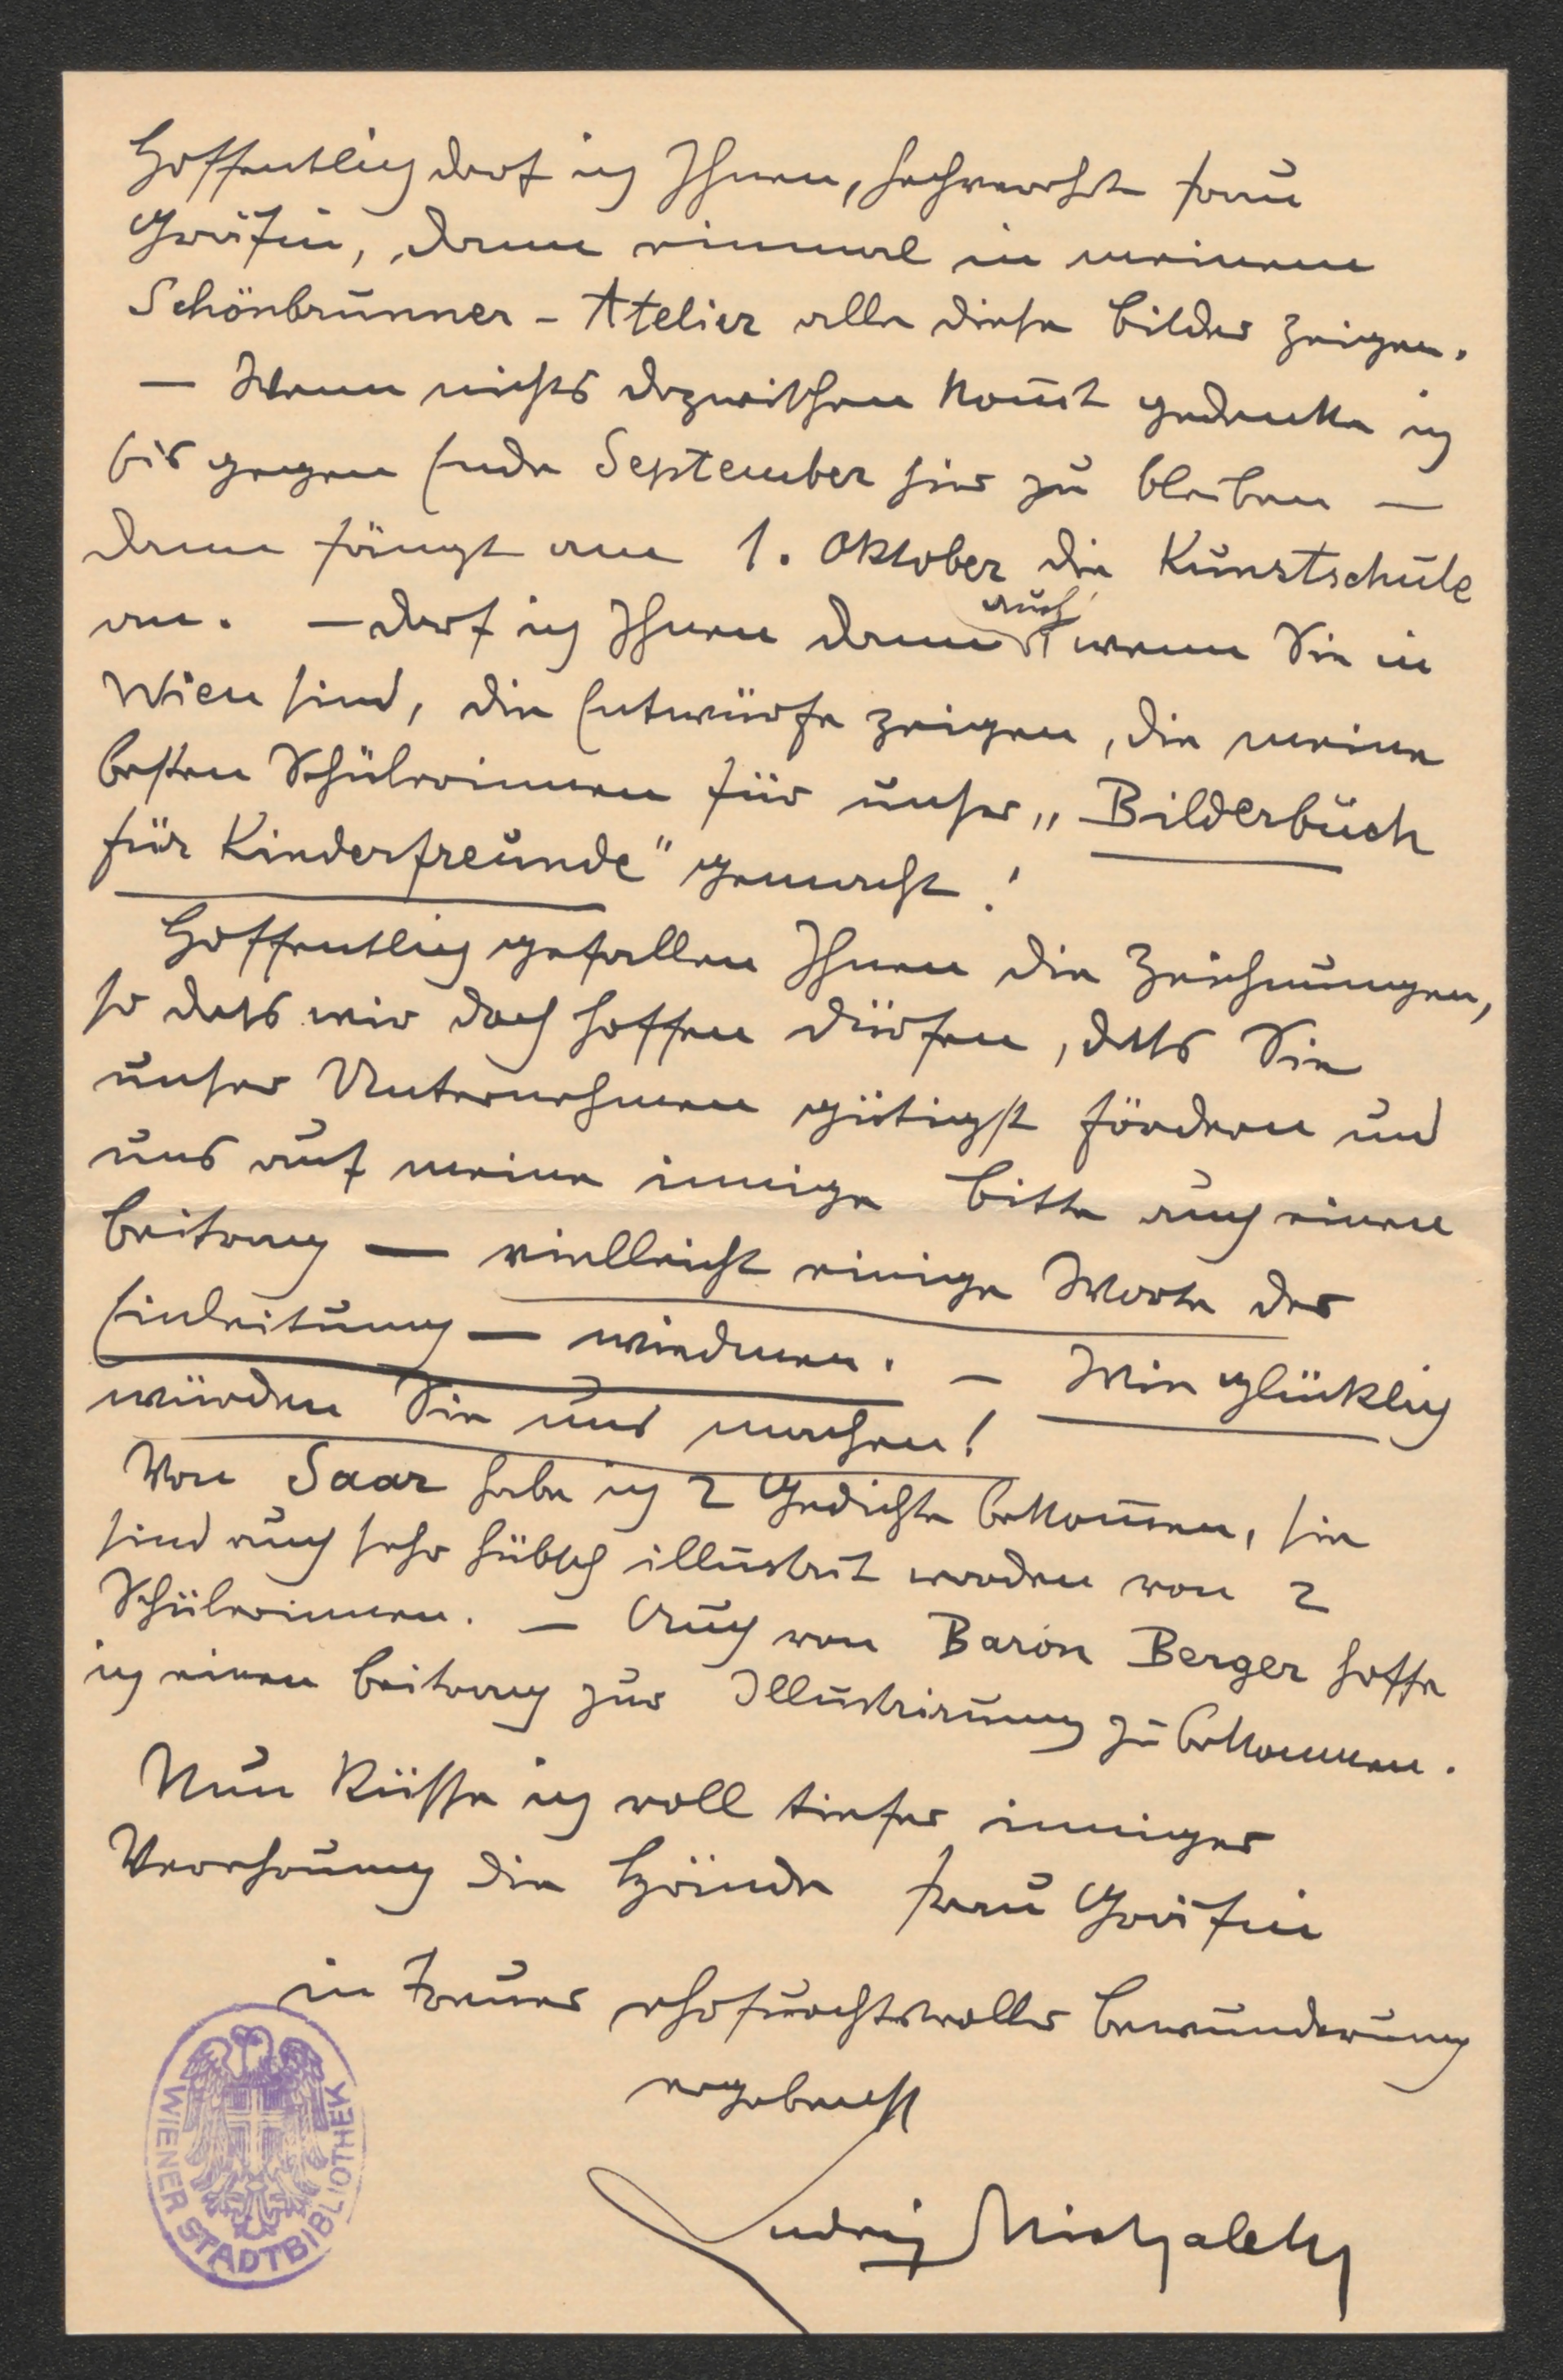 Hoffentlich darf ich Ihnen, hochverehrte Frau
Gräfin, dann einmal in meinem
Schönbrunner-Atelier alle diese Bilder zeigen.
— Wenn nichts dazwischen kom̄t gedenke ich
bis gegen Ende September hier zu bleiben —
dann fängt am 1. Oktober die Kunstschule
an. — Darf ich Ihnen dann auch wenn Sie in
Wien sind, die Entwürfe zeigen, die meine
besten Schülerinnen für unser „Bilderbuch
für Kinderfreunde" gemacht!
Hoffentlich gefallen Ihnen die Zeichnungen,
so dass wir doch hoffen dürfen, dass Sie
unser Unternehmen gütigst fördern und
uns auf meine innige Bitte auch einen
Beitrag — vielleicht einige Worte der
Einleitung — wiedmen. — Wie glücklich
würden Sie uns machen!
Von Saar habe ich 2 Gedichte bekom̄en, sie
sind auch sehr hübsch illustrirt worden von 2
Schülerinnen. — Auch von Baron Berger hoffe
ich einen Beitrag zur Illustrirung zu bekommen.
Nun küsse ich voll tiefer inniger
Verehrung die Hände Frau Gräfin
in treuer ehrfurchtsvoller Bewunderung
ergebenst
Ludwig Michalek
WIENER STADTBIBLIOTHEK